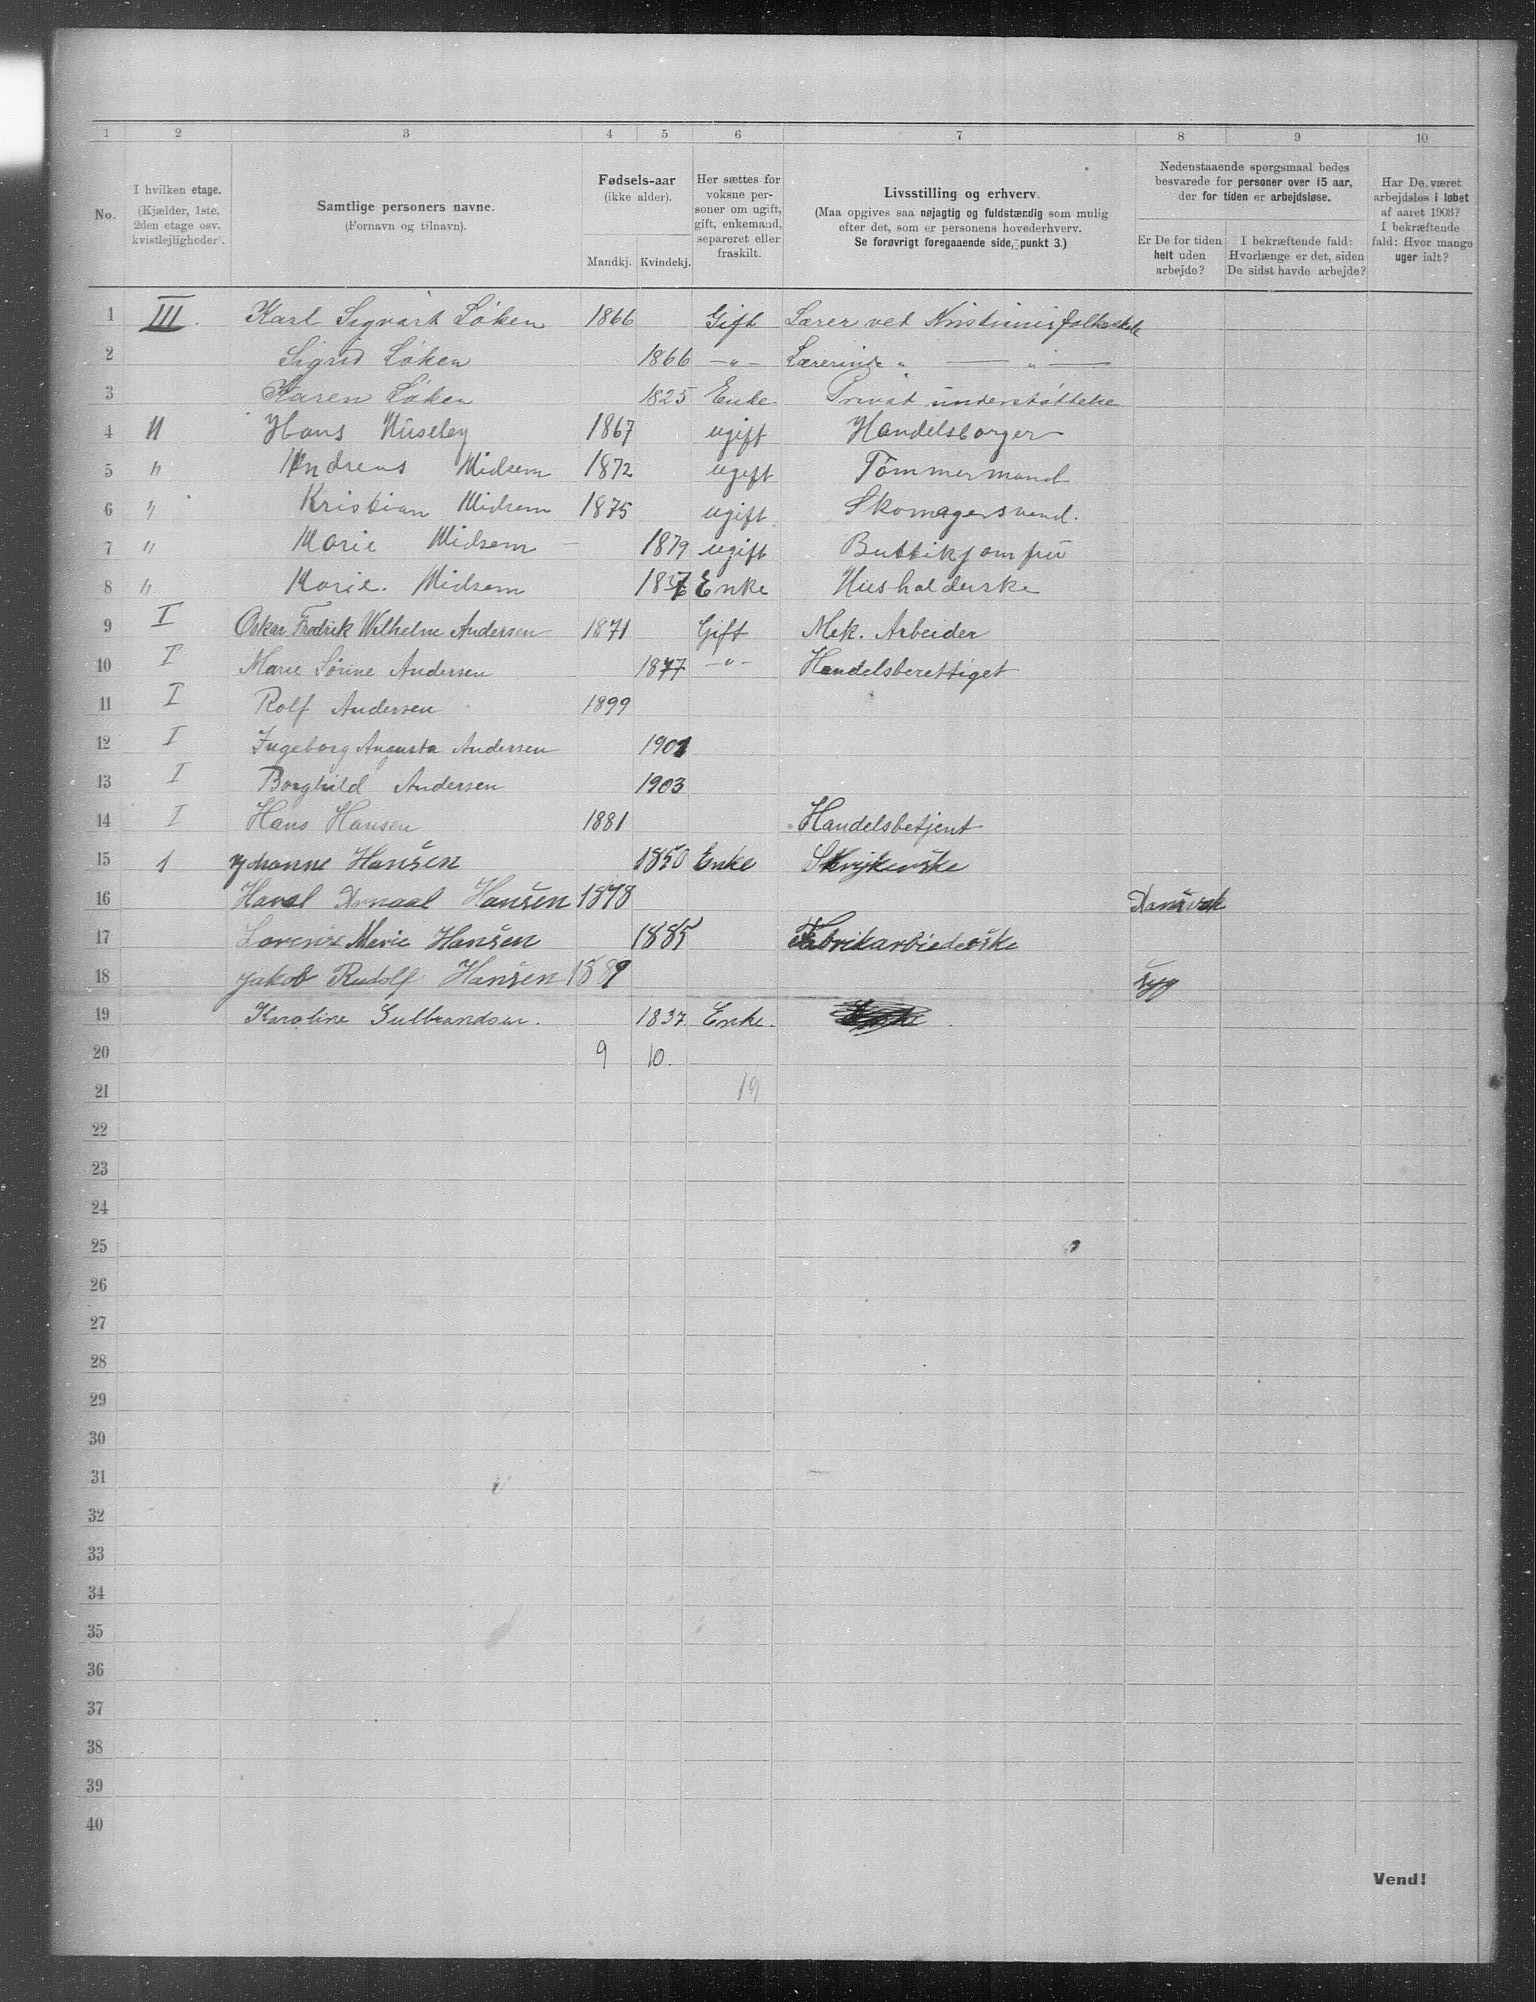 1 2 3 4 5 6 7 8 9 10
No.
I hvilken etage.
(Kjælder, 1ste, 2den etage osv. kvistlejligheder).
Samtlige personers navne.
(Fornavn og tilnavn).
Fødsels-aar
(ikke alder).
Mandkj. Kvindekj.
Her sættes for voksne personer om ugift, gift, enkemand, separeret eller fraskilt.
Livsstilling og erhverv.
(Maa opgives saa nøjagtig og fuldstændig som mulig efter det, som er personens hovederhverv.
Se forøvrigt foregaaende side, punkt 3.)
Nedenstaaende spørgsmaal bedes besvarede for personer over 15 aar, der for tiden er arbejdsløse.
Er De for tiden helt uden arbejde?
I bekræftende fald: Hvorlænge er det, siden De sidst havde arbejde?
Har De været arbejdsløs i løbet af aaret 1903? I bekræftende fald: Hvor mange uger ialt?
1 III. Karl Sigvart Løken 1866 Gift Lærer ved Kristiania folkeskole
2 Sigrid Løken 1866 -„- Lærerinde „ — „ —
3 Karen Løken 1825 Enke Privat understøttelse
4 II Hans Huseby 1867 ugift Handelsborger
5 " Andreas Midsem 1872 ugift Tømmermand
6 " Kristian Midsem 1875 ugift Skomagersvend.
7 " Marie Midsem 1879 ugift Buttikjomfru
8 " Marie. Midsem Enke Husholderske
9 I Oskar Fredrik Wilhelm Andersen 1871 Gift Mek. Arbeider
10 I Marie Sørine Andersen 1877 -"- Handelsberettiget
11 I Rolf Andersen 1899
12 I Ingeborg Augusta Andersen 1901
13 I Borghild Andersen 1903
14 I Hans Hansen 1881 Handelsbetjent
15 1 Johanne Hansen 1850 Enke
16 Hansen 1878
17 Marie Hansen 1885 Fabrikarbiederske
18 Jakob Rudolf Hansen 1889 syg
19 Karoline Gulbrandsen. 1837 Enke.
20 9 10.
21 19
22
23
24
25
26
27
28
29
30
31
32
33
34
35
36
37
38
39
40
Vend!